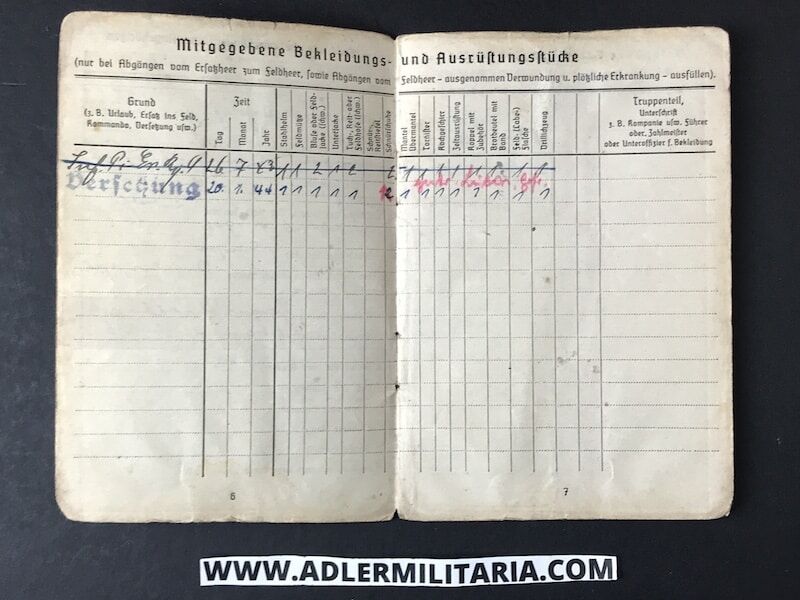 Mitgegebene Bekleidungs- und Ausrüstungsstücke
(nur bei Abgängen vom Ersatzheer zum Feldheer, sowie Abgängen vom Feldheer - ausgenommen Verwundung u. plötzliche Erkrankung - ausfüllen).
Grund
(z. B. Urlaub, Ersatz ins Feld,
Kommando, Versetzung usw.)
Zeit
Tag
Monat
Jahr
Stahlhelm
Feldmütze
Bluse oder Feld-
jacke (schw.)
Unterjacke
Tuch-, Reit- oder
Feldhose (schw.)
Schnürschuhe
Mantel
Übermantel
Tornister
Kochgeschirr
Zeltausrüstung
Koppel mit
Zubehör
Brotbeutel mit
Band
Feld- (Labe)
flasche
Drillichzeug
Truppenteil,
Unterschrift
z. B. Kompanie usw. Führer
oder Zahlmeister
oder Unteroffizier f. Bekleidung
26. 7. 43 1 1 2 1 2
Versetzung 20. 1. 44 1 1 1 1 1 2 1 1 1 1 1 1 1 1 1
6
7
WWW.ADLERMILITARIA.COM